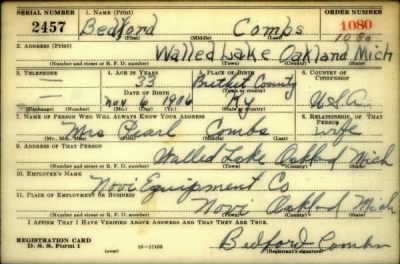 SERIAL NUMBER 1. NAME (Print) ORDER NUMBER
2457 Bedford Combs 1080
(First) (Middle) (Last) 1080
2. ADDRESS (Print)
Walled Lake Oakland Mich
(Number and street or R. F. D. number) (Town) (County) (State)
3. TELEPHONE 4. AGE IN YEARS 5. PLACE OF BIRTH 6. COUNTRY OF CITIZENSHIP
33 Brethet County
DATE OF BIRTH (Town or county)
Nov 6 1906 Ky U.S.A.
(Exchange) (Number) (Mo.) (Day) (Yr.) (State or country)
7. NAME OF PERSON WHO WILL ALWAYS KNOW YOUR ADDRESS 8. RELATIONSHIP OF THAT PERSON
Mrs Pearl Combs wife
(Mr., Mrs., Miss) (First) (Middle) (Last)
9. ADDRESS OF THAT PERSON
Walled Lake Oakland Mich
(Number and street or R. F. D. number) (Town) (County) (State)
10. EMPLOYER'S NAME
Novi Equipment Co
11. PLACE OF EMPLOYMENT OR BUSINESS
Novi Oakland Mich
(Number and street or R. F. D. number) (Town) (County) (State)
I AFFIRM THAT I HAVE VERIFIED ABOVE ANSWERS AND THAT THEY ARE TRUE.
REGISTRATION CARD Bedford Combs
D. S. S. Form 1 16—17105 (Registrant's signature)